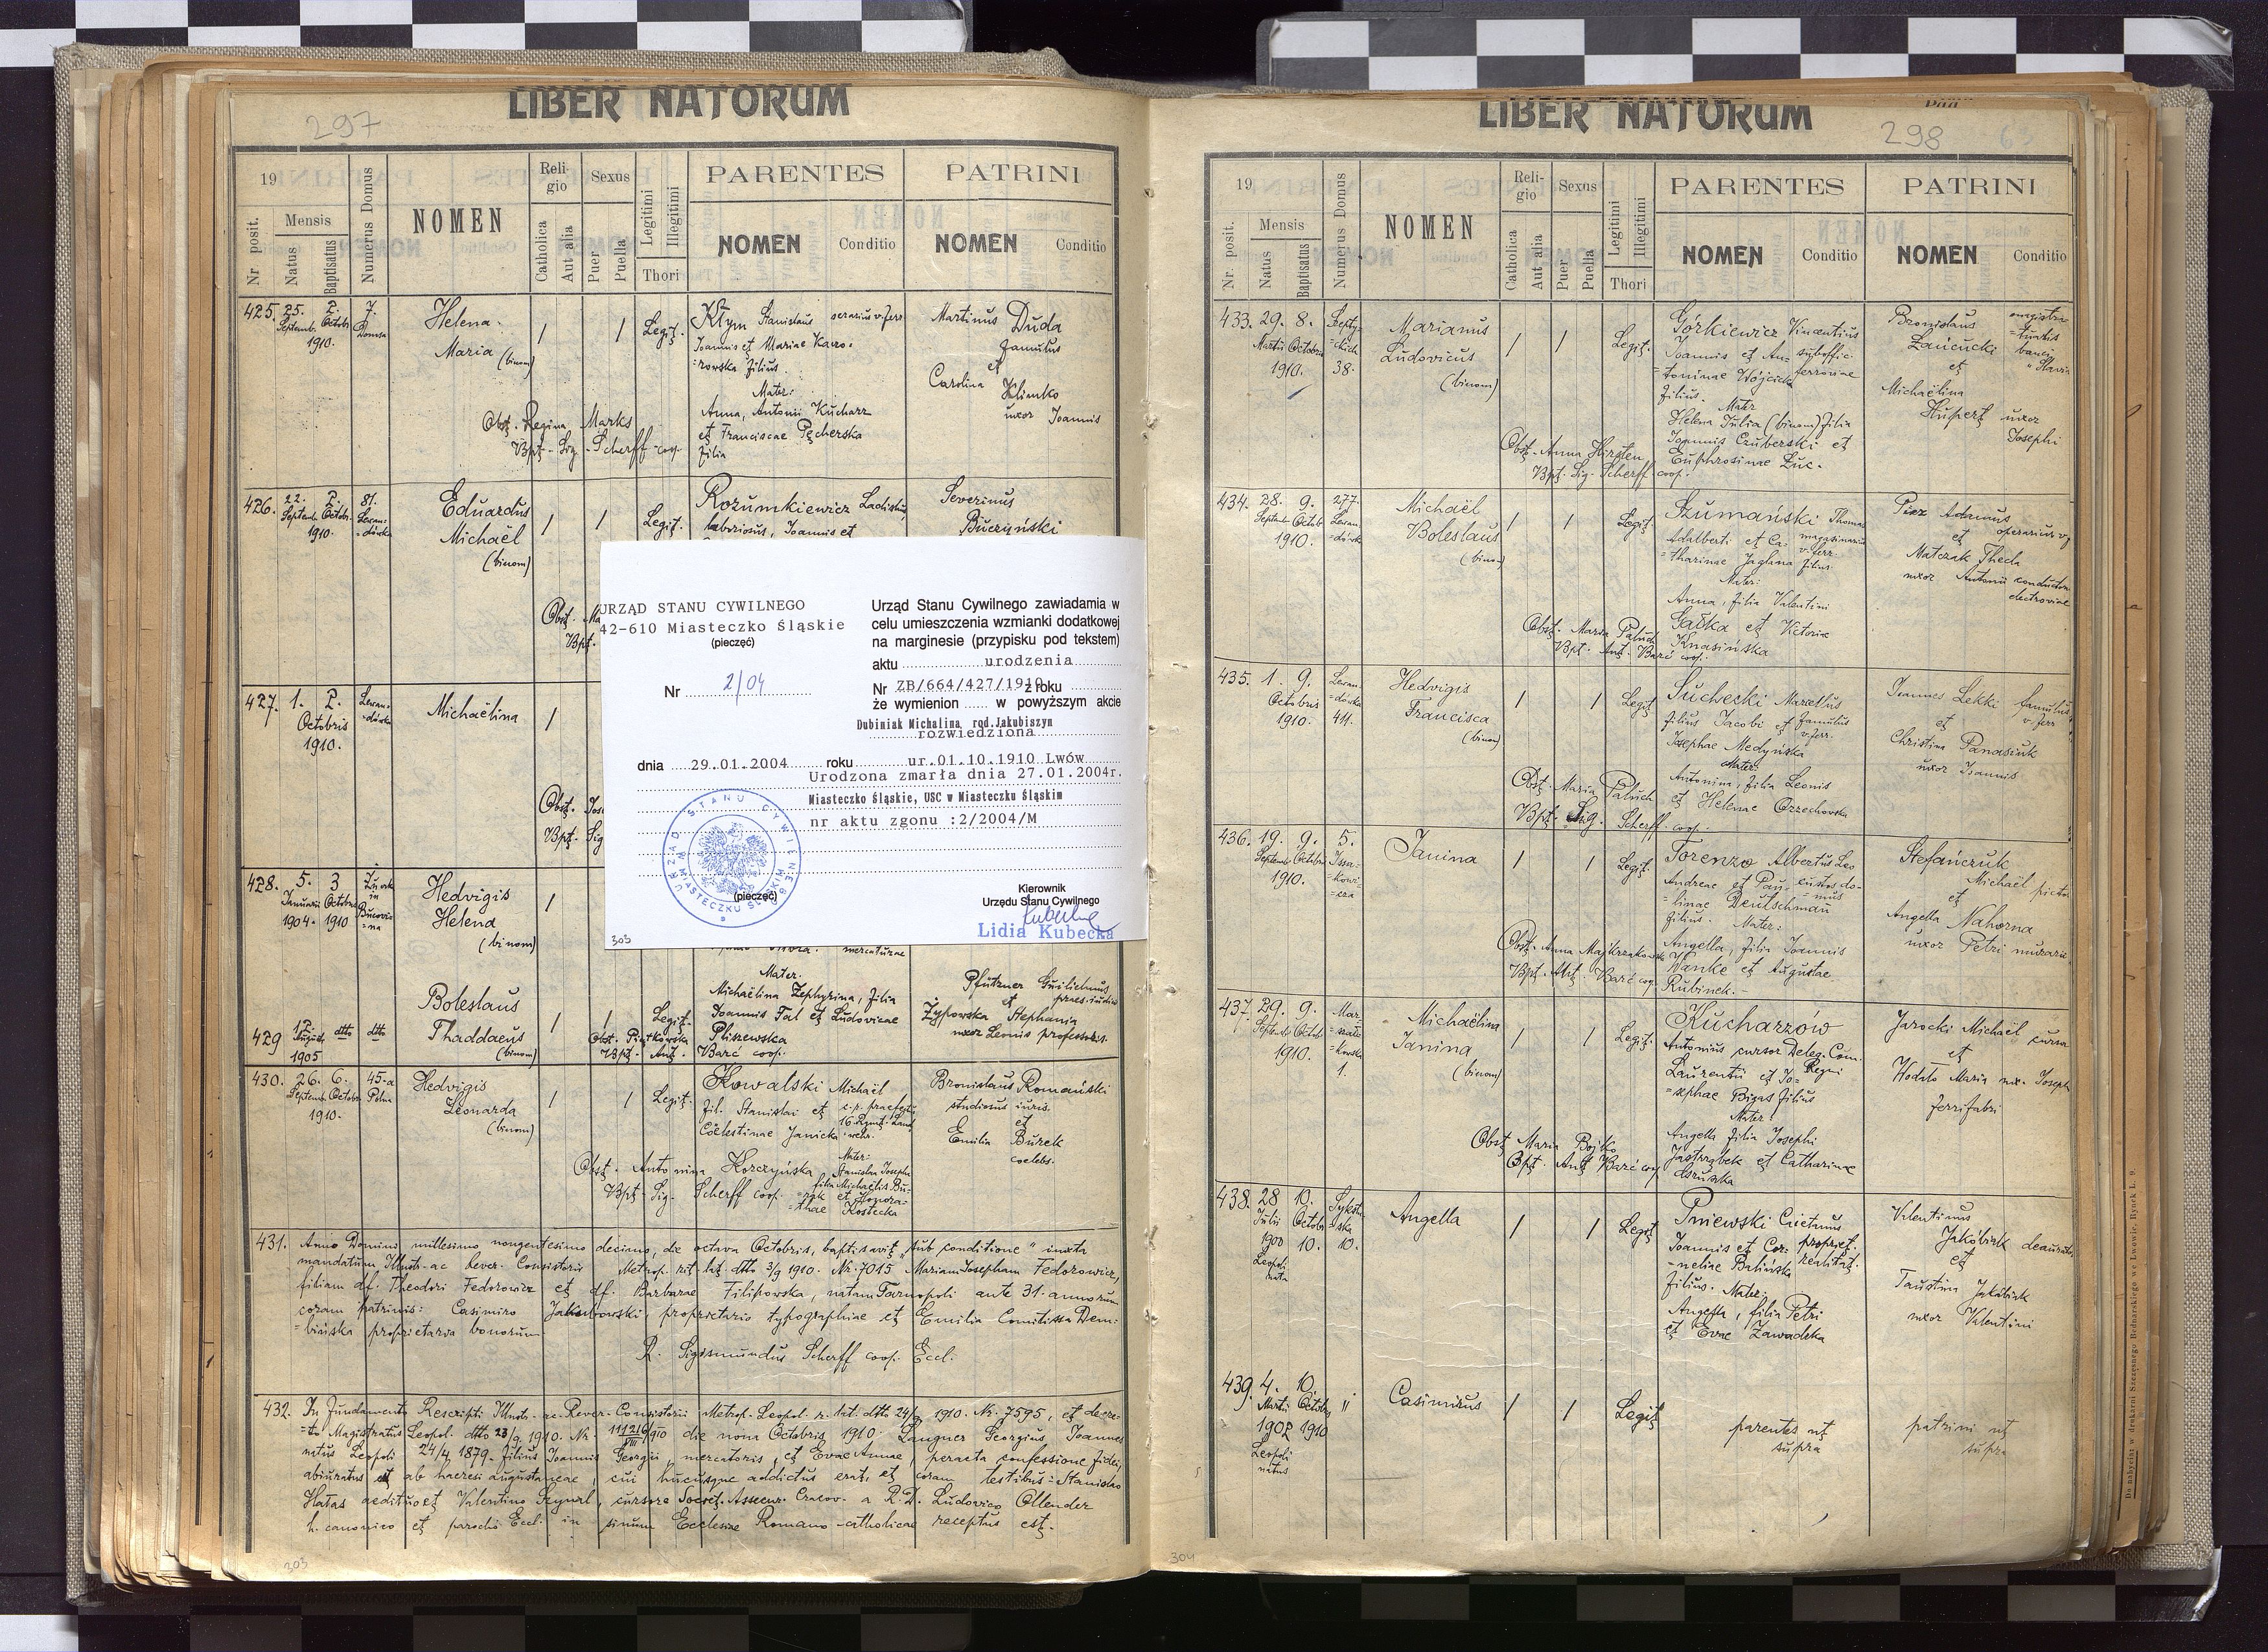 297
LIBER NATORUM
19
Mensis
Nr. posit.
Natus
Baptisatus
Numerus Domus
NOMEN
Reli-
gio
Catholica
Aut alia
Sexus
Puer
Puella
Legitimi
Illegitimi
Thori
PARENTES
NOMEN Conditio
PATRINI
NOMEN Conditio
425. 25. 2. 7.
Septemb. Octobr.
1910.
Helena
Maria (binom)
Legit.
Kłym Stanislaus
Joannis et Mariae
filius.
Mater:
Anna, Antonii Kucharz
et Franciscae Pęcherska
filia
Martinus Duda
famulus
et
Carolina Klimko
uxor Joannis
Obst. Regina Marks
Bpt. Sig. Scherff coop.
426. 22. 2. 81.
Septemb. Octobr. Lewan-
1910. dówka
Eduardus
Michaël
(binom)
Legit.
Rozumkiewicz Ladislaus,
laboriosus, Joannis et
Severinus
Buczyński
Obst. Ma
Bpt.
427. 1. 2. Lewan-
Octobris dówka
1910.
Michaëlina
Obst. Jos
Bpt. Sig
URZĄD STANU CYWILNEGO
42-610 Miasteczko Śląskie
(pieczęć)
Nr 2/04
Urząd Stanu Cywilnego zawiadamia w
celu umieszczenia wzmianki dodatkowej
na marginesie (przypisku pod tekstem)
aktu urodzenia
Nr ZB/664/427/1910 z roku
że wymienion w powyższym akcie
Dubiniak Michalina rod.Jakubiszyn
rozwiedziona
dnia 29.01.2004 roku ur.01.10.1910 Lwów
Urodzona zmarła dnia 27.01.2004r.
Miasteczko Śląskie, USC w Miasteczku Śląskim
nr aktu zgonu :2/2004/M
URZĄD STANU CYWILNEGO
W MIASTECZKU ŚLĄSKIM
(pieczęć)
Kierownik
Urzędu Stanu Cywilnego
Lidia Kubecka
303
428. 5. 3
Januarii Octobris in
1904 1910 Bucovi-
na
Hedvigis
Helena
(binom)
mercaturae
Mater.
Michaëlina Zephyrina, filia
Joannis Tal et Ludovicae
Pliszewska
Pfützner Guilielmus
et
Żypowska Stephania
uxor Leonis professoris.
429 12. dtto dtto
August.
1905
Boleslaus
Thaddaeus
(binom)
Legit.
Obst. Piątkowska
Bpt. Ant. Barć coop.
430. 26. 6. 45-a
Septemb. Octobr.
1910.
Hedvigis
Leonarda
(binom)
Legit.
Kowalski Michaël
fil. Stanislai et
Coelestinae Janicka
Mater:
Stanislaa Josepha
filia Michaëlis Bu-
rak et Honora-
thae Kostecka
Bronislaus Romański
studiosus iuris.
et
Emilia Burek
coelebs.
Obst. Antonina Korczyńska
Bpt. Sig. Scherff coop.
431. Anno Domini millesimo nongentesimo decimo, die octava Octobris, baptisavit „sub conditione" iuxta
mandatum Illustr. ac Rever. Consistorii Metrop. rit. lat. dtto 3/9 1910. Nr. 7015 Mariam Josepham Fedorowicz,
filiam df. Theodori Fedorowicz et df. Barbarae Filipowska, natam Tarnopoli ante 31. annorum
coram patrinis: Casimiro Jakubowski, proprietario typographiae et Emilia Comitissa Dem-
bińska proprietaria bonorum
R. Sigismundus Scherff coop. Eccl.
432. In fundamento Rescripti Illustr. ac Rever. Consistorii Metrop. Leopol. r. lat. dtto 24/9 1910. Nr. 7595, et decre-
to Magistratus Leopol. dtto 23/9. 1910. Nr. 111216/910 VIII die nona Octobris 1910 Laugner Georgius Joannes
natus Leopoli 24/4 1879. filius Joannis Georgii, mercatoris, et Evae Annae, peracta confessione fidei,
abiuratus et ab haeresi Augustanae, cui hucusque addictus erat, et coram testibus: Stanislao
Hałas aedituo et Valentino Szynal, cursore Societ. Assecur. Cracov. a R. D. Ludovico Ollender
h. canonico et parocho Eccl. in sinum Ecclesiae Romano-catholicae receptus est.
303
298
63
LIBER NATORUM
19
Mensis
Nr. posit.
Natus
Baptisatus
Numerus Domus
NOMEN
Reli-
gio
Catholica
Aut alia
Sexus
Puer
Puella
Legitimi
Illegitimi
Thori
PARENTES
NOMEN Conditio
PATRINI
NOMEN Conditio
433. 29. 8. Septy-
Martii Octobris ckich
1910. 38.
Marianus
Ludovicus
(binom)
Legit.
Górkiewicz Vincentius
Joannis et An-
toninae Wójcicka
filius.
Mater
Helena Julia (binom) filia
Joannis Czuberski et
Euphrosinae Łuc.
Bronislaus
Łańcucki
et
Michaëlina
Hupert uxor
Josephi
Obst. Anna Hirsten
Bpt. Sig. Scherff coop.
434. 28. 9. 277.
Septemb. Octob. Lewan-
1910. dówk
Michaël
Boleslaus
(binom)
Legit.
Szumański Thomas
Adalberti et Ca- magasinarius
tharinae Jaglana filius v. ferr.
Mater:
Anna, filia Valentini
Gałka et Victoria
Knasińska
Piez Adamus
operarius v.f
et
Matczak Thecla
uxor Antonii conductor
electroviae
Obst. Maria Paluch
Bpt. Ant. Barć coop.
435. 1. 9. Lewan-
Octobris dówka
1910. 411.
Hedvigis
Francisca
(binom)
Legit
Suchecki Marcellus
filius Jacobi et famulus
Josephae Medyńska v. ferr.
Mater:
Antonina, filia Leonis
et Helenae Orzechowska
Joannes Lekki famulus
v. ferr
et
Christina Panasiuk
uxor Joannis
Obst. Maria Paluch
Bpt. Sig. Scherff coop.
436. 19. 9. 5.
Septemb. Octobr. Issa-
1910. kowi-
cza
Janina
Legit.
Torenzo Albertus Leo
Andreae et Pau- custos do-
linae Deutschman mus
filius. Mater:
Angella, filia Joannis
Wanke et Augustae
Rubinek.
Stefańczuk
Michaël pictor
et
Angella Nahorna
uxor Petri murarii
Obst. Anna Majkrzakowska
Bpt. Ant. Barć coop
437. 29. 9. Mar-
Septemb. Octob. szałko-
1910. wska
1.
Michaëlina
Janina
(binom)
Legit.
Kucharzów
Antonius cursor Deleg. Com.
Laurentii et Jo- Regni
sephae Bigas filius
Mater
Angella filia Josephi
Jastrząbek et Catharinae
Gruszka
Jarocki Michaël cursor
et
Wodzło Maria ux. Joseph
ferrifabri
Obst Maria Bojko
Bpt. Ant Barć coop
438. 28 10. Syksta-
Julii Octobr. ska
1900 10. 10.
Leopoli
nata
Angella
Legit
Pniewski Cajetanus
Joannis et Cor- propriet.
neliae Balińska realitat.
filius. Mater.
Angella, filia Petri
et Evae Zawadzka
Valentinus
Jakóbiak deaurator
et
Faustina Jakóbiak
uxor Valentini
439. 4. 10. "
Martii Octobr.
1902 1910
Leopoli
natus
Casimirus
Legit
parentes ut
supra
patrini ut
supra
304
Do nabycia w drukarni Szczęsnego Bednarskiego we Lwowie, Rynek L. 9.